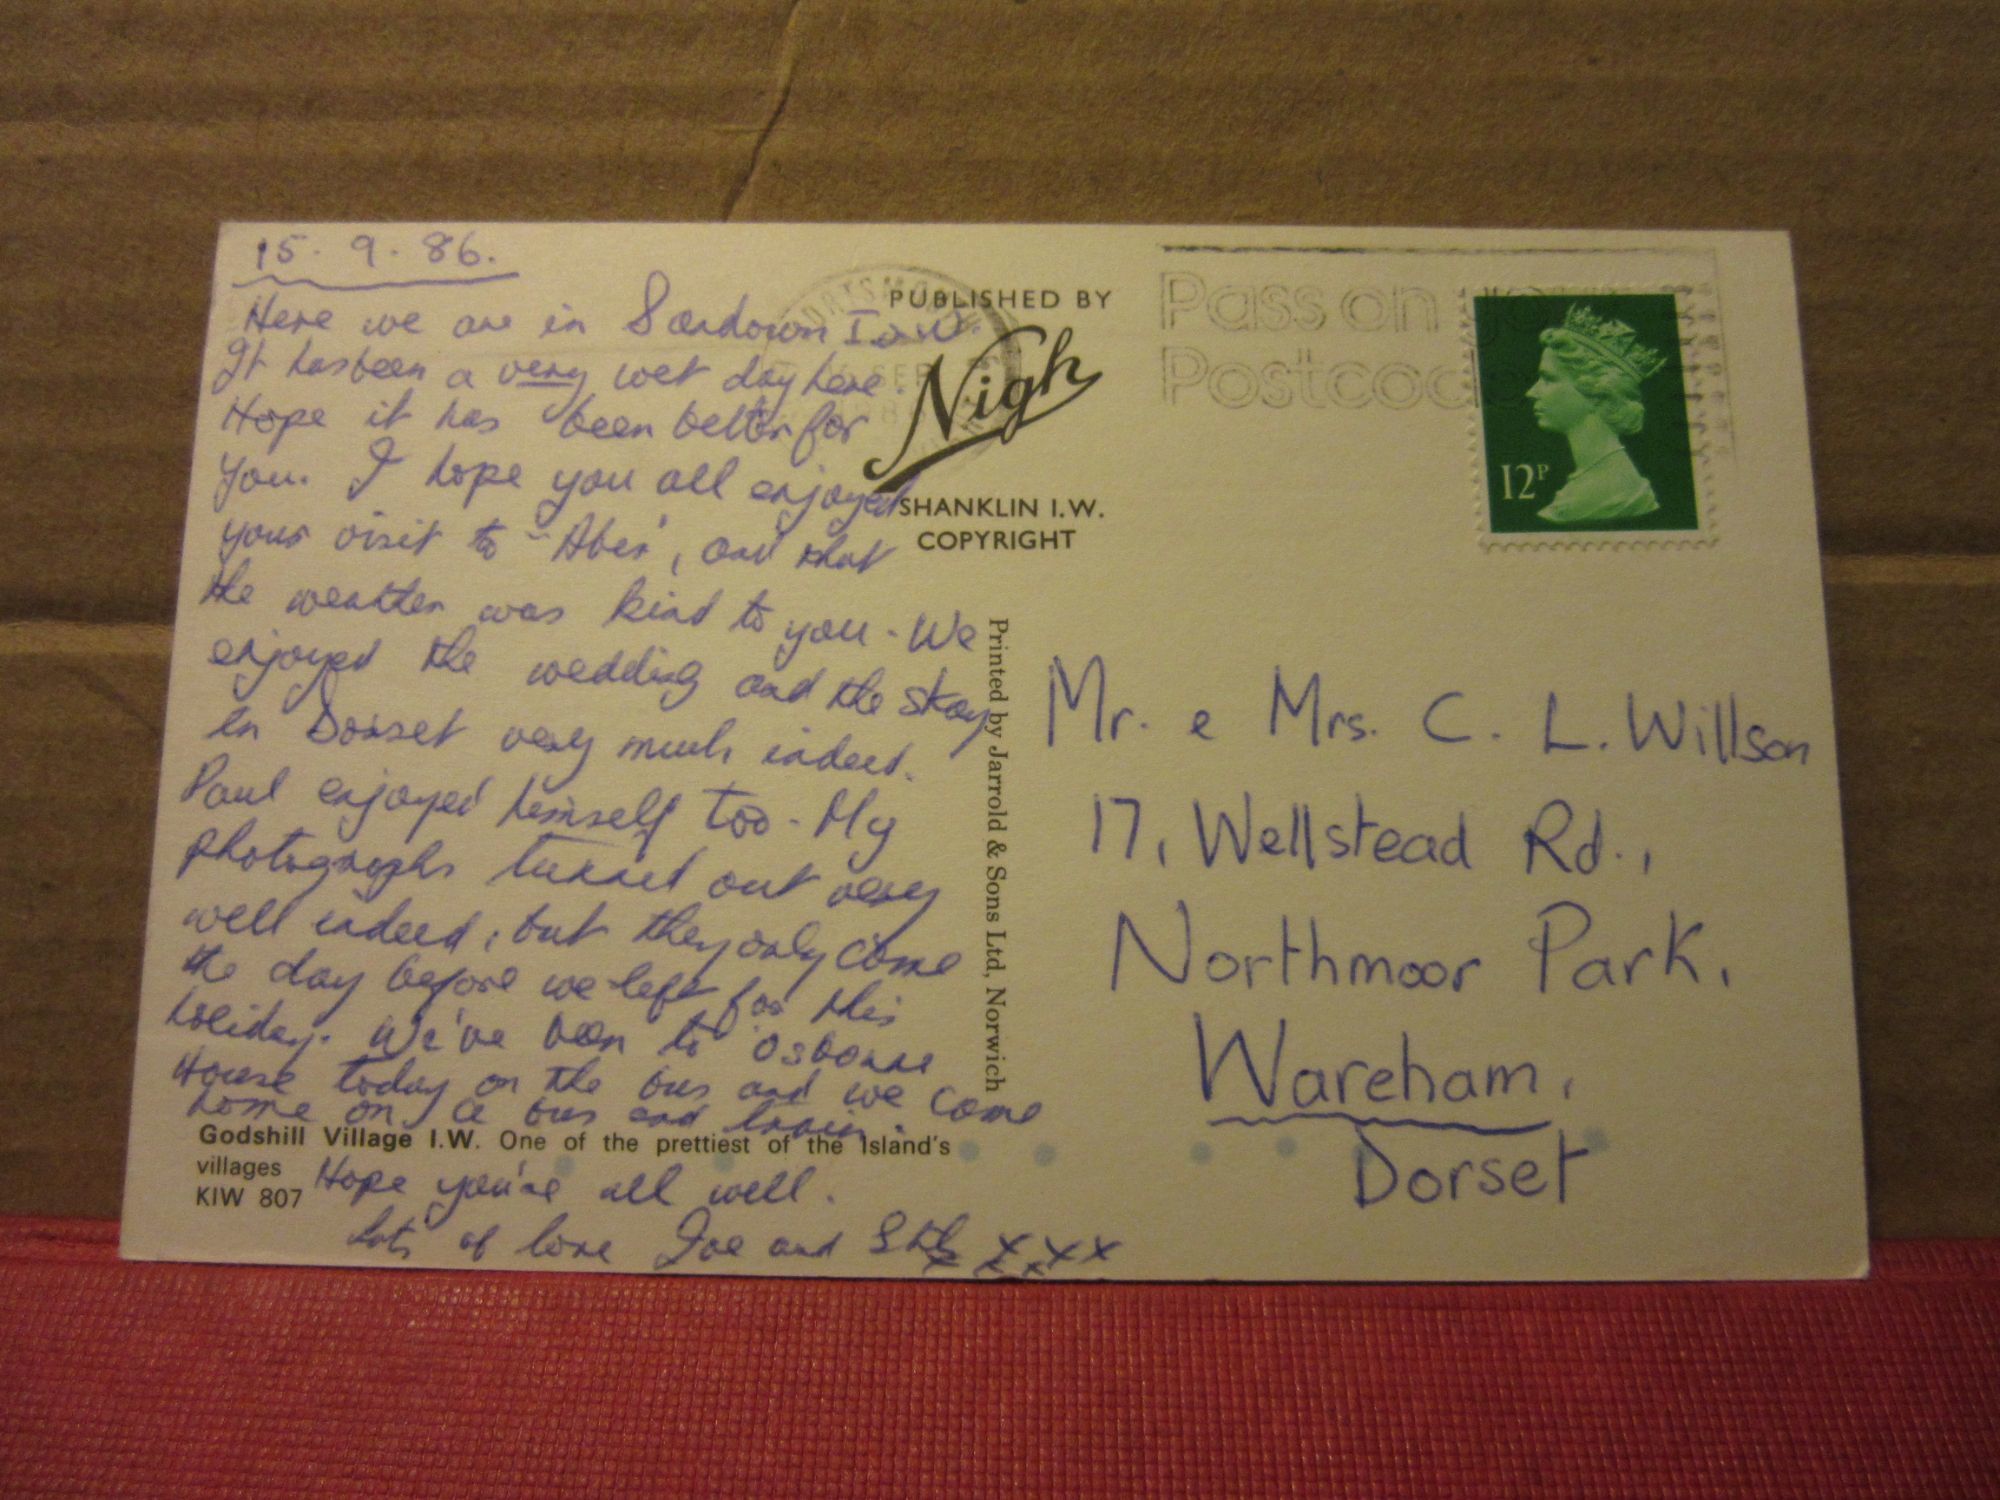 15. 9. 86.
Here we are in Sandown I.o.W.
It has been a very wet day here.
Hope it has been better for
you. I hope you all enjoyed
your visit to "Aber", and that
the weather was kind to you. We
enjoyed the wedding and the stay
in Dorset very much indeed.
Paul enjoyed himself too. My
photographs turned out very
well indeed, but they only come
the day before we left for this
holiday. We've been to Osborne
House today on the bus and we come
home on a bus and train.
Hope you're all well.
Lots of love Joe and
xxx
Godshill Village I.W. One of the prettiest of the Island's
villages
KIW 807
PUBLISHED BY
Nigh
SHANKLIN I.W.
COPYRIGHT
Printed by Jarrold & Sons Ltd, Norwich
PORTSMOUTH
SEP
Pass on
12P
Mr. e Mrs. C. L. Willson
17, Wellstead Rd.,
Northmoor Park,
Wareham,
Dorset